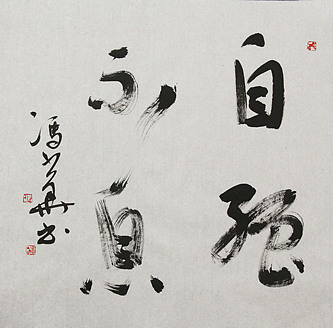 自强
不息
冯华书